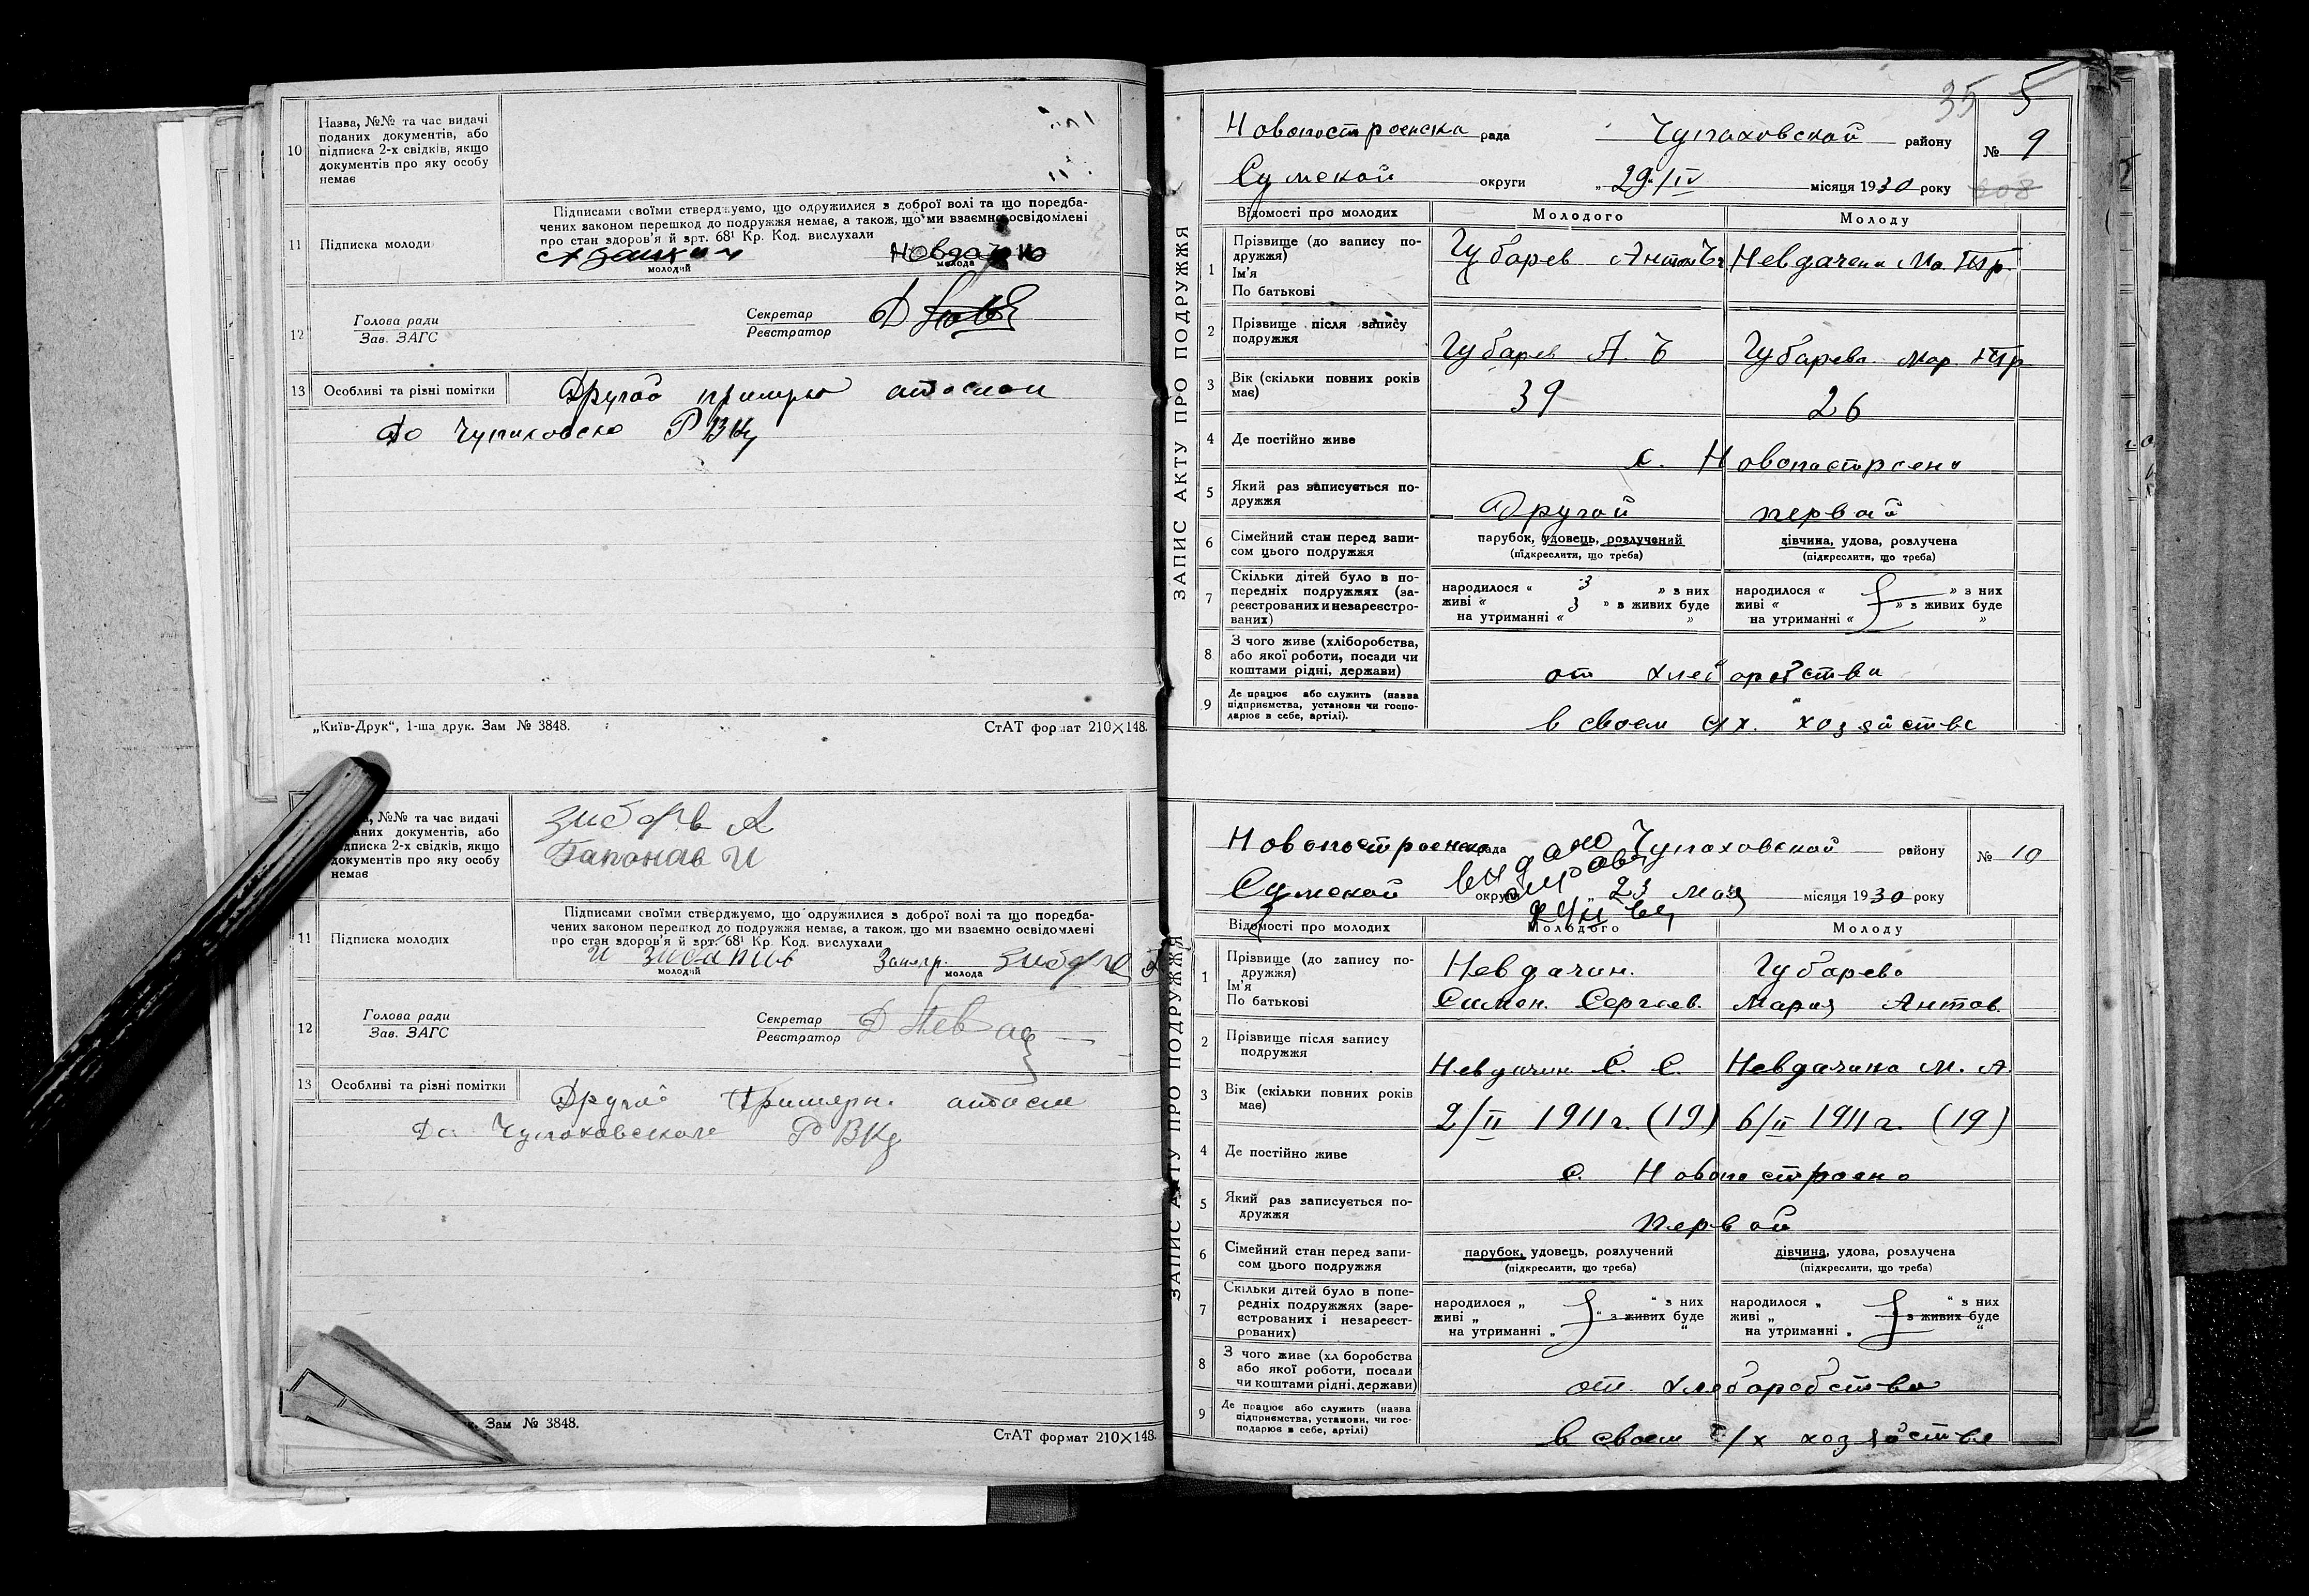 10
Назва, №№ та час видачі
поданих документів, або
підписка 2-х свідків, якщо
документів про яку особу
немає
11
Підписка молоди
Підписами своїми стверджуємо, що одружилися з доброї волі та що поредба-
чених законом перешкод до подружжя немає, а також, що ми взаємно освідомлені
про стан здоров'я й зрт. 68¹ Кр. Код. вислухали
молодий
молода
12
Голова ради
Зав. ЗАГС
Секретар
Реєстратор
13
Особливі та різні помітки
Другой
До Чупиховско РВКу
„Київ-Друк“, 1-ша друк. Зам № 3848.
СтАТ формат 210×148.
№№ та час видачі
документів, або
підписка 2-х свідків, якщо
документів про яку особу
немає
Гапонав И
11
Підписка молодих
Підписами своїми стверджуємо, що одружилися з доброї волі та що поредба-
чених законом перешкод до подружжя немає, а також, що ми взаємно освідомлені
про стан здоров'я й зрт. 68¹ Кр. Код. вислухали
молодий
молода
12
Голова ради
Зав. ЗАГС
Секретар
Реєстратор
13
Особливі та різні помітки
Другой Примерн.
До Чупаховского РВКу
Зам № 3848.
СтАТ формат 210×148.
35 5
ЗАПИС АКТУ ПРО ПОДРУЖЖЯ
Новопостроенска рада Чупаховской району
№ 9
Сумской округи „29“/IV місяця 1930 року
Відомості про молодих
Молодого
Молоду
1
Прізвище (до запису по-
дружжя)
Ім'я
По батькові
Губарев Невдачена Ма. Птр.
2
Прізвище після запису
подружжя
Губарев А. Губарева Мар. Птр
3
Вік (скільки повних років
має)
39
26
4
Де постійно живе
с. Новопостроена
5
Який раз записується по-
дружжя
Другой
первой
6
Сімейний стан перед запи-
сом цього подружжя
парубок, удовець, розлучений
(підкреслити, що треба)
дівчина, удова, розлучена
(підкреслити, що треба)
7
Скільки дітей було в по-
передніх подружжях (за-
реєстрованих и незареєстро-
ваних)
народилося « 3 » з них
живі « 3 » з живих буде
на утриманні « »
народилося « » з них
живі « » з живих буде
на утриманні « »
8
З чого живе (хліборобства,
або якої роботи, посади чи
коштами рідні, держави)
от хлеборобства
9
Де працює або служить (назва
підприємства, установи чи госпо-
дарює в себе, артілі).
в своем сх. хозяйстве
ЗАПИС АКТУ ПРО ПОДРУЖЖЯ
Новопостроенска рада Чупаховской району
№ 10
Сумской округи „23 мая місяця 1930 року
Відомості про молодих
Молодого
Молоду
1
Прізвище (до запису по-
дружжя)
Ім'я
По батькові
Невдачин.
Симон. Сергеев.
Губарева
Мария Антов.
2
Прізвище після запису
подружжя
Невдачин С. С. Невдачина М. А
3
Вік (скільки повних років
має)
2/II 1911 г. (19) 6/II 1911 г. (19)
4
Де постійно живе
с. Новопостроено
5
Який раз записується по-
дружжя
первой
6
Сімейний стан перед запи-
сом цього подружжя
парубок, удовець, розлучений
(підкреслити, що треба)
дівчина, удова, розлучена
(підкреслити, що треба)
7
Скільки дітей було в попе-
редніх подружжях (заре-
єстрованих і незареєст-
рованих)
народилося „ “ з них
живі „ “ з живих буде
на утриманні „ “
народилося „ “ з них
живі „ з живих буде
на утриманні „ “
8
З чого живе (хл боробства
або якої роботи, посали
чи коштами рідні, держави)
от. хлеборобства
9
Де працює або служить (назва
підприємства, установи, чи гос-
подарює в себе, артілі)
в своем с/х хозяйстве